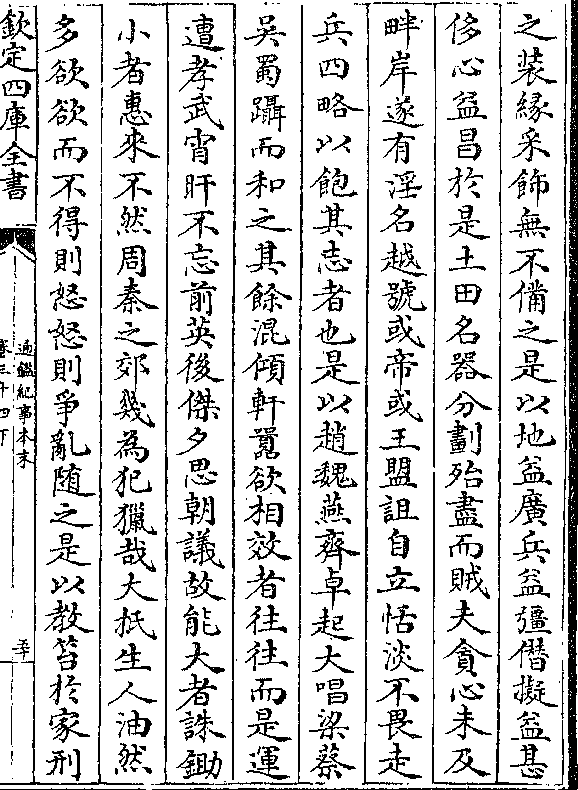 之裝緣采飾無不備之是以地益廣兵益彊僣擬益甚
侈心益昌於是土田名器分劃殆盡而賊夫貪心未及
畔岸遂有淫名越號或帝或王盟詛自立恬淡不畏走
兵四略以飽其志者也是以趙魏燕齊卓起大唱梁蔡
吳蜀躡而和之其餘混傾軒囂欲相效者往往而是運
遭孝武宵旰不忘前英後傑夕思朝議故能大者誅鋤
小者惠來不然周秦之郊幾為犯獵哉大抵生人油然
多欲欲而不得則怒怒則爭亂随之是以教笞於家刑
欽定四庫全書
通鑑紀事本末
卷三十四下